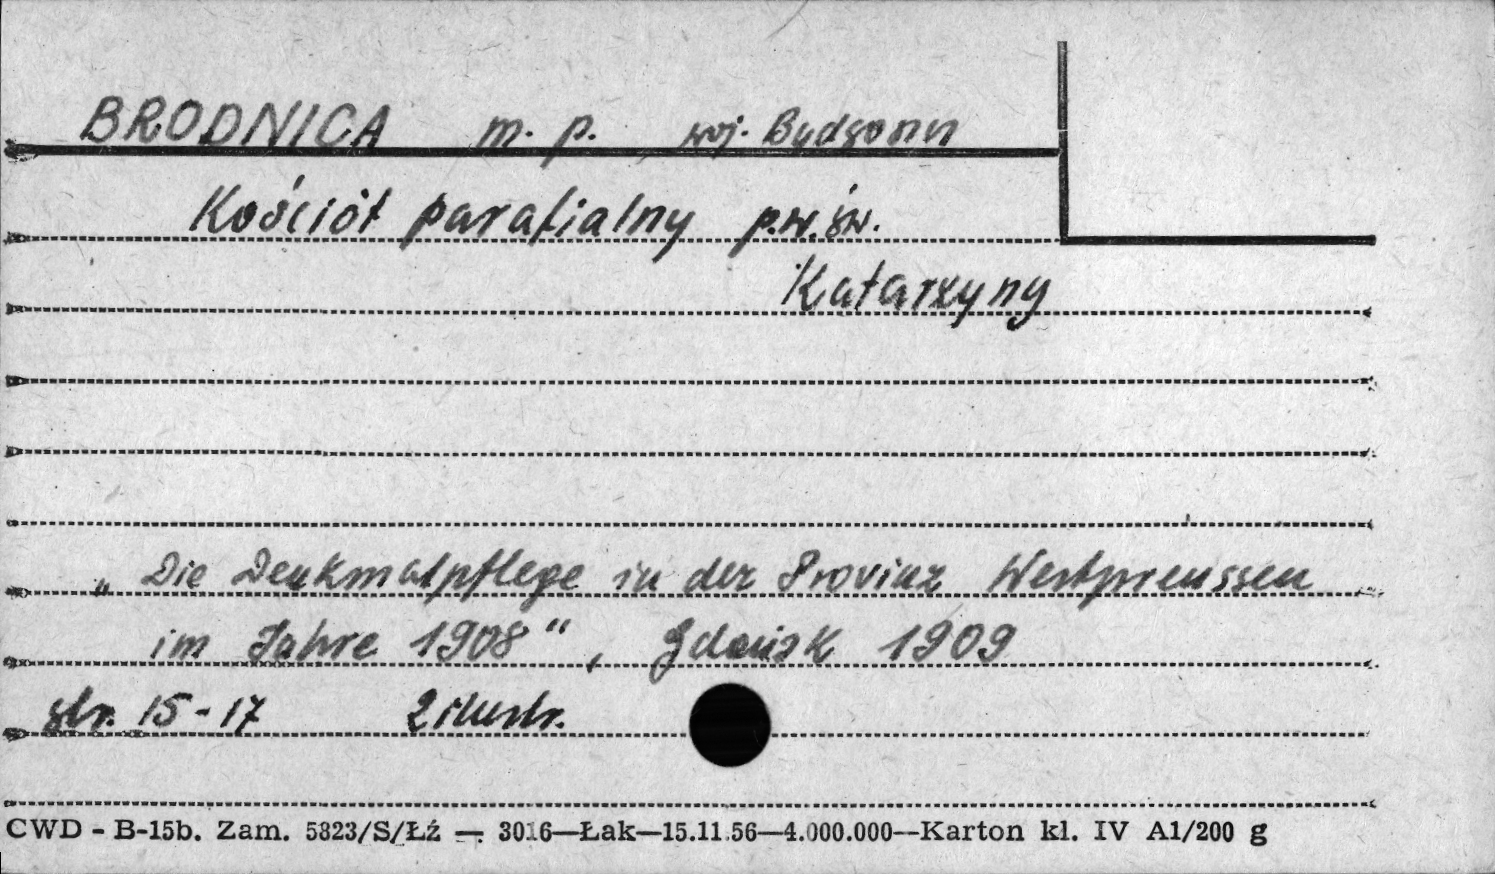 BRODNICA m. p. woj. Bydgoszcz
Kościół parafialny p.w. św.
Katarzyny
„Die Denkmalpflege in der Provinz Westpreussen
im Jahre 1908", Gdańsk 1909
str. 15-17 2 ilustr.
CWD - B-15b. Zam. 5323/S/Łź — 3016—Łak—15.11.56—4.000.000—Karton kl. IV A1/200 g